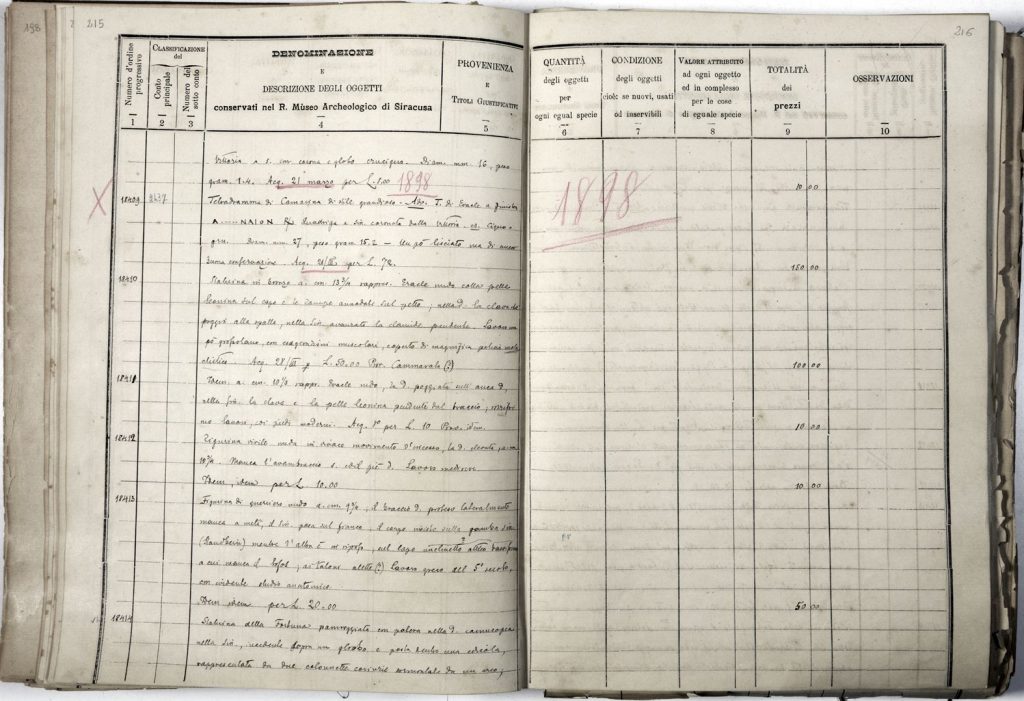 198
2
215
216
Numero d'ordine progressivo
1
CLASSIFICAZIONE
del
Conto principale
2
Numero del sotto conto
3
DENOMINAZIONE
E
DESCRIZIONE DEGLI OGGETTI
conservati nel R. Museo Archeologico di Siracusa
4
PROVENIENZA
E
TITOLI GIUSTIFICATIVI
5
QUANTITÀ
degli oggetti
per
ogni egual specie
6
CONDIZIONE
degli oggetti
cioè: se nuovi, usati
od inservibili
7
VALORE ATTRIBUITO
ad ogni oggetto
ed in complesso
per le cose
di eguale specie
8
TOTALITÀ
dei
prezzi
9
OSSERVAZIONI
10
Vittoria a s. con corona e globo crucigero. Diam. mm. 16, peso
gram. 1.4. Acq. 21 marzo per L. 5.00 1898
1898
10 00
X
18409
Tetradramma di Camarina di stile grandioso. T. di Eracle a
Quadriga a sin. coronata dalla Vittoria. Cigno e
gru. Diam. mm. 27, peso gram 15.2 — Un pò lisciato ma di
buona conservazione. Acq. per L. 72.
150 00
18410
Statuina in bronzo a. cm. 13 rappres. Eracle nudo colla pelle
leonina sul capo e le zampe annodate sul petto; nella d. la clava
poggia alla spalla, nella sin. avanzata la clamide pendente. Lavoro un
pò grossolano, con esagerazioni muscolari, coperto di magnifica
Acq. 28/III p. L. 50.00 Prov. Cammarata (?)
100 00
18411
Idem a. cm. 10 rappr. Eracle nudo, la d. poggiata sull'anca d,
nella sin. la clava e la pelle leonina pendente dal braccio;
lavoro, coi piedi moderni. Acq. per L. 10 Prov. idem.
10 00
18412
Figurina virile nuda in vivace movimento d'incesso, la d. elevata, a. cm
10 Manca l'avambraccio s. ed il piè d. Lavoro mediocre.
Idem, idem per L. 10.00
10 00
18413
Figurina di guerriero nudo a. cm. il braccio d. proteso lateralmente
manca a metà, il sin. posa sul fianco, il corpo insiste sulla gamba
mentre l'altra è in riposo, sul capo elmetto attico
a cui manca il lofos; ai talloni alette (?) Lavoro greco del 5° secolo,
con evidente studio anatomico.
Idem idem per L. 20.00
50 00
18414
Statuina della Fortuna panneggiata con patera nella d. cornucopia
nella sin., insidente sopra un globo e posta dentro una edicola,
rappresentata da due colonnette corinzie sormontate da un arco,